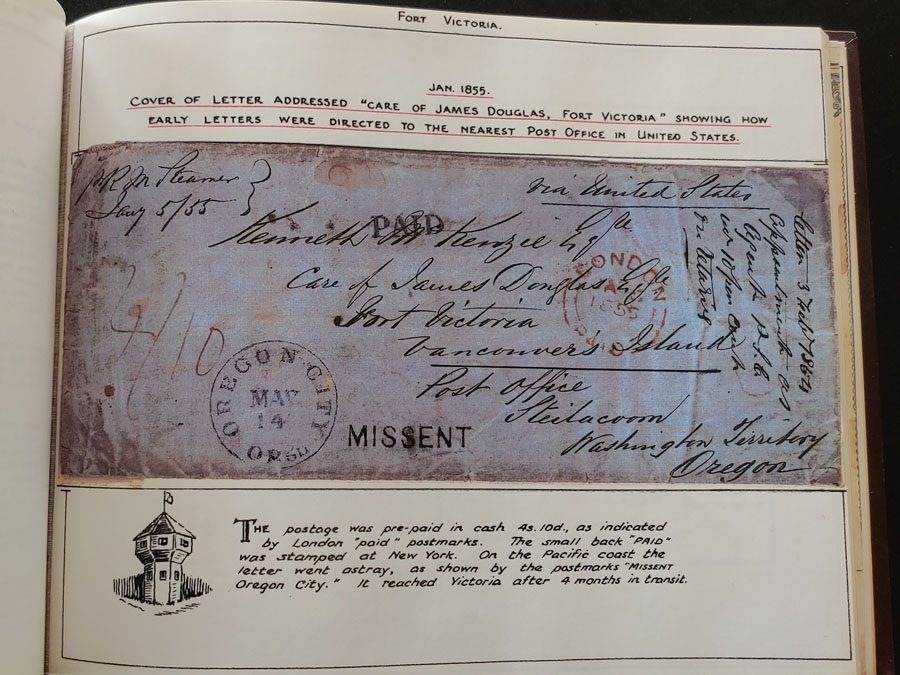 FORT VICTORIA.
JAN. 1855.
COVER OF LETTER ADDRESSED "CARE OF JAMES DOUGLAS, FORT VICTORIA" SHOWING HOW
EARLY LETTERS WERE DIRECTED TO THE NEAREST POST OFFICE IN UNITED STATES.
R M Steamer
Jany 5/55
via United States
PAID
Kenneth McKenzie Esqre
Care of James Douglas Esqr
Fort Victoria
Vancouver's Island
Post Office
Steilacoom
Washington Territory
Oregon
LONDON
1855
PAID
4/10
OREGON CITY
MAR
14
MISSENT
letter 3 1854
appointment as
Agent P.S.C
THE postage was pre-paid in cash 4s. 10d., as indicated
by London "paid" postmarks. The small back "PAID"
was stamped at New York. On the Pacific coast the
letter went astray, as shown by the postmarks "MISSENT
Oregon City." It reached Victoria after 4 months in transit.